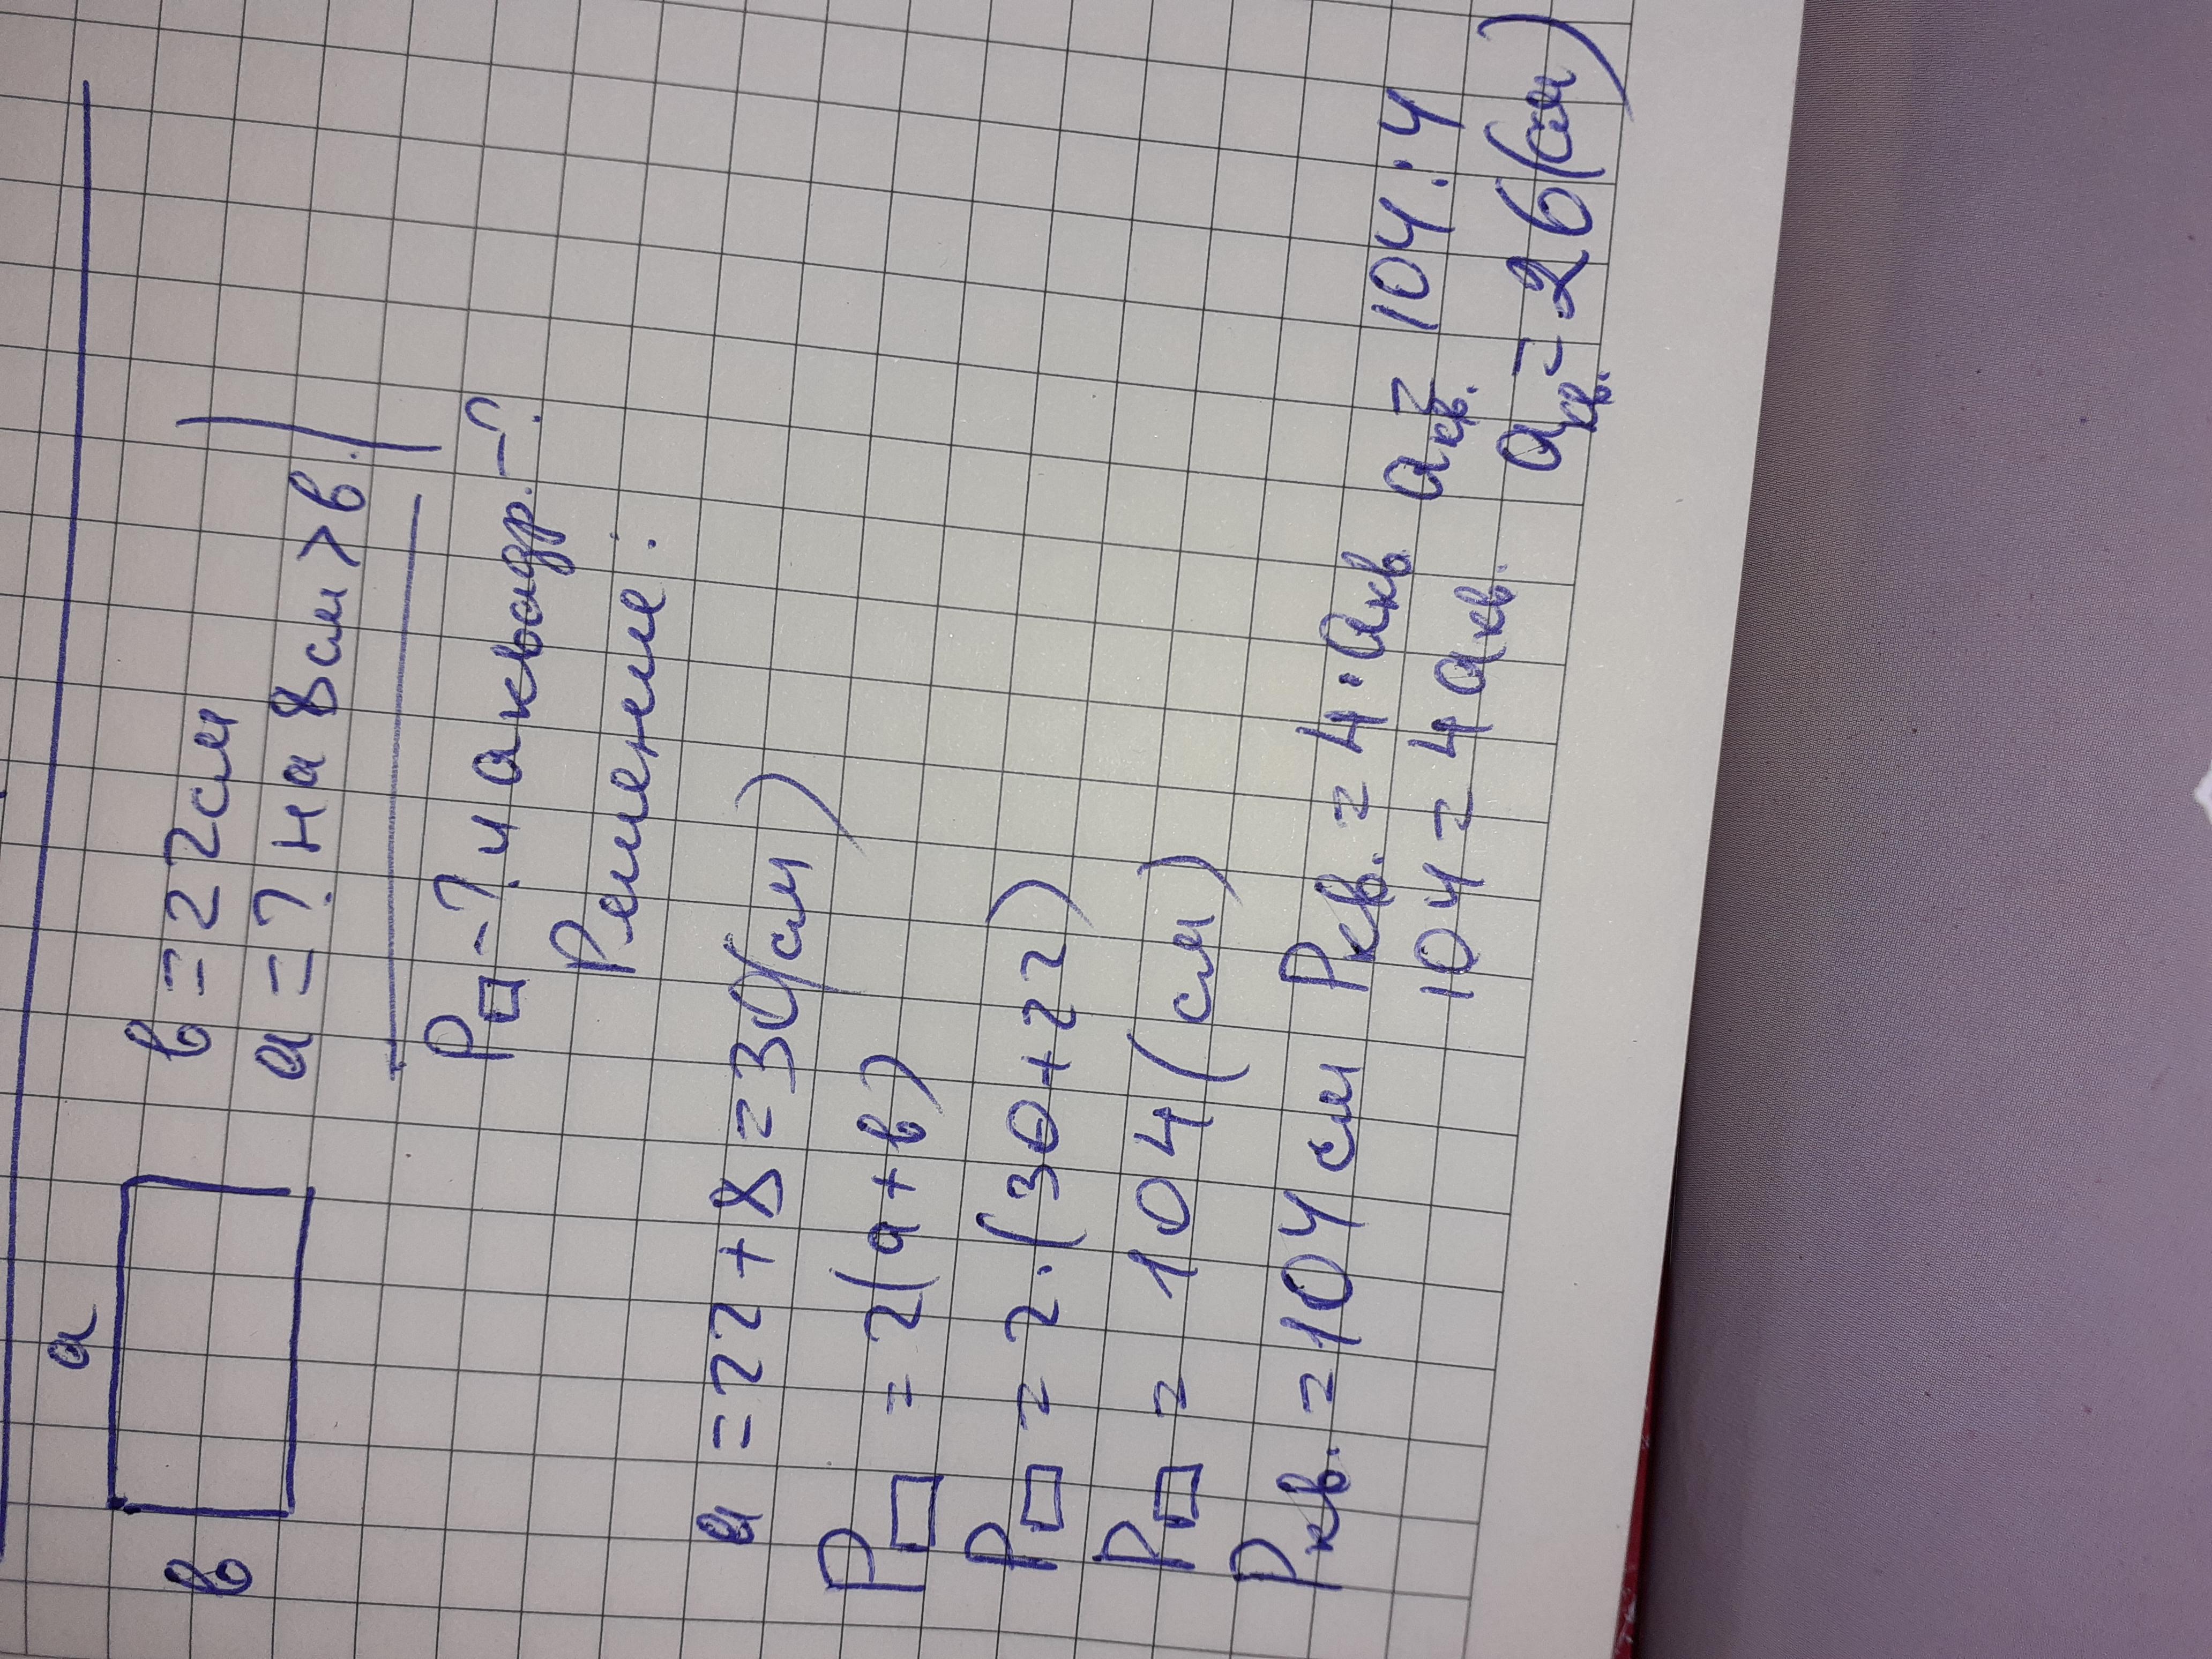 а
в
в = 22см
а = ? на 8см > в.
P▭ - ? и а квадр. - ?
Решение:
а = 22 + 8 = 30(см)
P▭ = 2(а + в)
P▭ = 2 · (30 + 22)
P▭ = 104 (см)
Pкв. = 104 см Pкв. = 4 · aкв aкв. = 104 : 4
104 = 4 aкв. aкв. = 26(см)